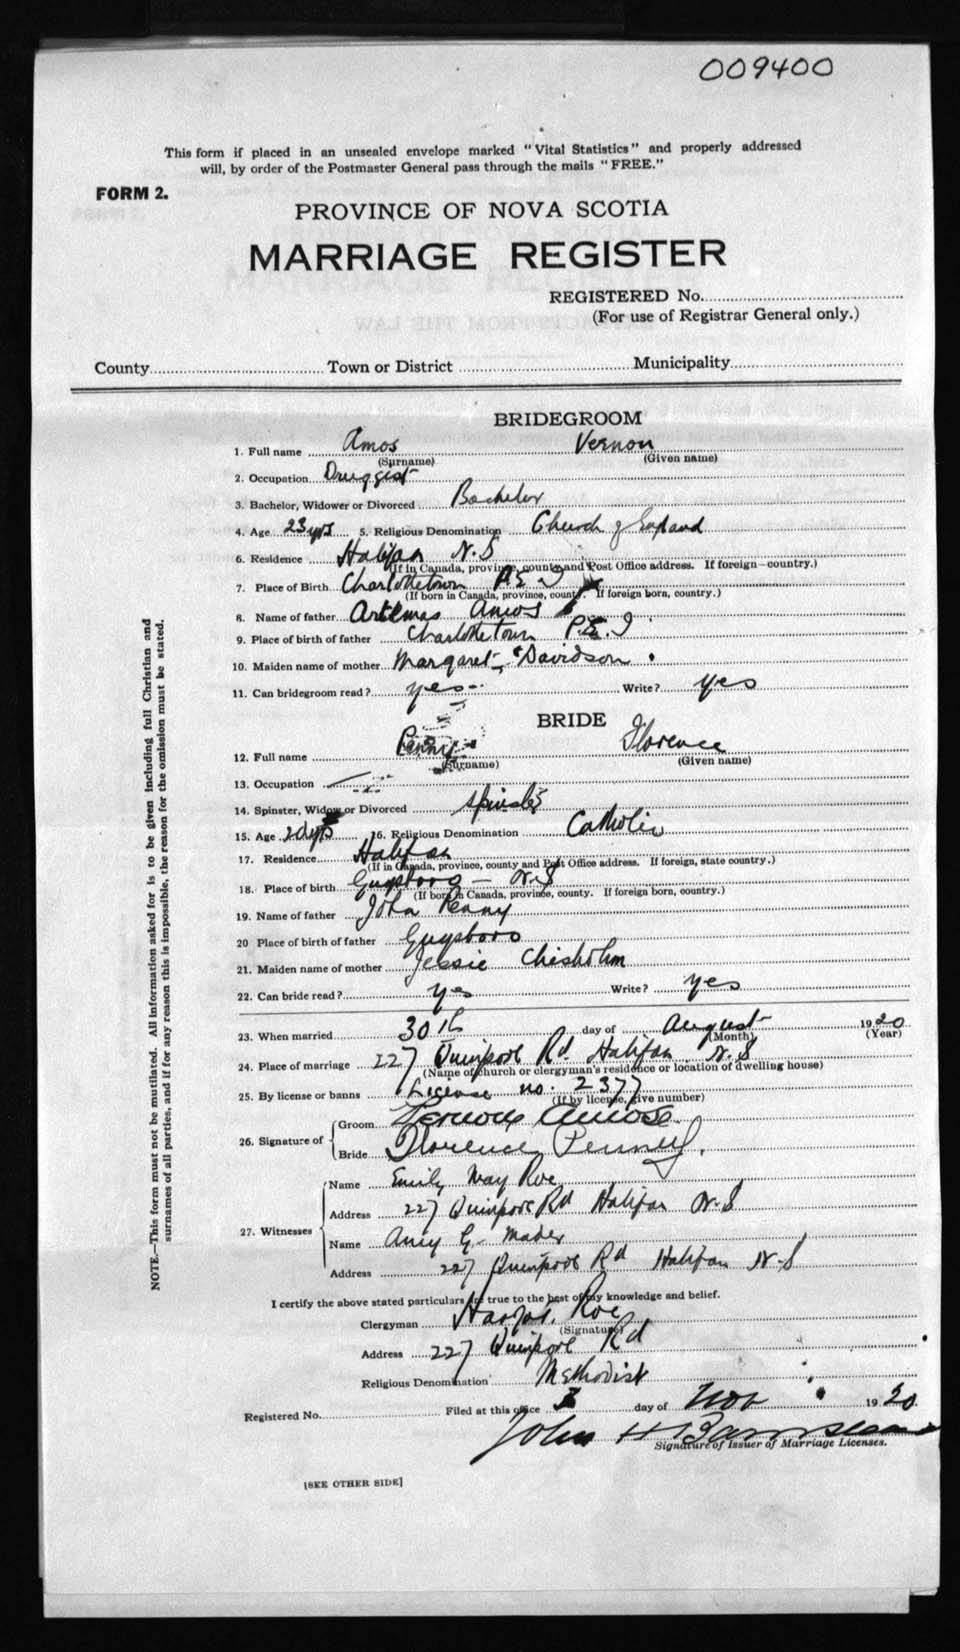 009400
This form if placed in an unsealed envelope marked "Vital Statistics" and properly addressed
will, by order of the Postmaster General pass through the mails "FREE."
FORM 2.
PROVINCE OF NOVA SCOTIA
MARRIAGE REGISTER
REGISTERED No.
(For use of Registrar General only.)
County Town or District Municipality
BRIDEGROOM
1. Full name Amos Vernon
(Surname) (Given name)
2. Occupation Druggist
3. Bachelor, Widower or Divorced Bachelor
4. Age 23 yrs 5. Religious Denomination Church of England
6. Residence Halifax N.S
(If in Canada, province, county and Post Office address. If foreign—country.)
7. Place of Birth Charlottetown P.E.I
(If born in Canada, province, county. If foreign born, country.)
8. Name of father Artemas Amos
9. Place of birth of father Charlottetown P.E.I
10. Maiden name of mother Margaret Davidson
11. Can bridegroom read? yes Write? yes
BRIDE
12. Full name Penny Florence
(Surname) (Given name)
13. Occupation
14. Spinster, Widow or Divorced Spinster
15. Age yrs 16. Religious Denomination Catholic
17. Residence Halifax
(If in Canada, province, county and Post Office address. If foreign, state country.)
18. Place of birth Guysboro — N.S
(If born in Canada, province, county. If foreign born, country.)
19. Name of father John Penny
20 Place of birth of father Guysboro
21. Maiden name of mother Jessie Chisholm
22. Can bride read? yes Write? yes
23. When married 30th day of August 1920
(Month) (Year)
24. Place of marriage 227 Quinpool Rd Halifax N.S
(Name of church or clergyman's residence or location of dwelling house)
25. By license or banns License no. 2377
(If by license, give number)
26. Signature of
Groom Vernon Amos
Bride Florence Penney.
27. Witnesses
Name Emily May Roe
Address 227 Quinpool Rd Halifax N.S
Name Amy G. Mader
Address 227 Quinpool Rd Halifax N.S
I certify the above stated particulars are true to the best of my knowledge and belief.
Clergyman Roe
(Signature)
Address 227 Quinpool Rd
Religious Denomination Methodist
Registered No. Filed at this office 3 day of Nov 1920.
John H Barnstead
Signature of Issuer of Marriage Licenses.
[SEE OTHER SIDE]
NOTE.—This form must not be mutilated. All information asked for is to be given including full Christian and
surnames of all parties, and if for any reason this is impossible, the reason for the omission must be stated.